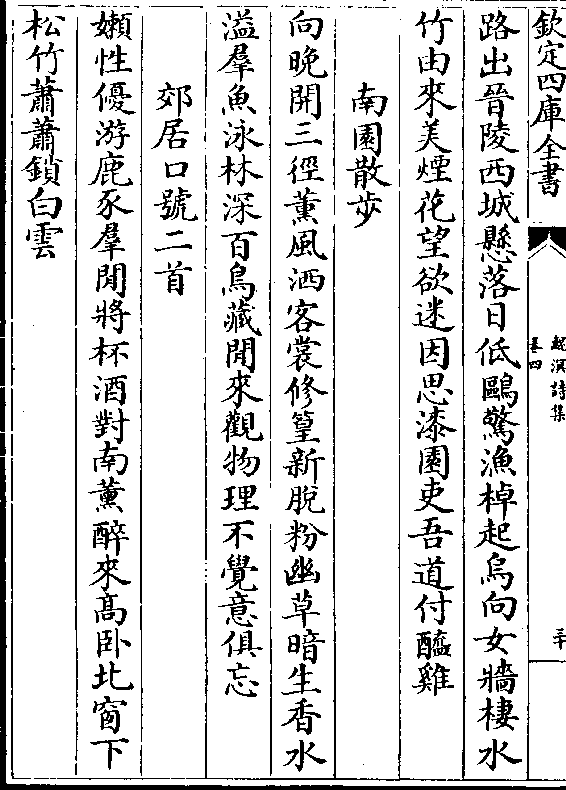 欽定四庫全書
鯤溟詩集
卷四
三十
路出晉陵西城懸落日低鷗驚漁棹起烏向女牆棲水
竹由來美煙花望欲迷因思漆園吏吾道付醯雞
南園散步
向晚開三徑薰風洒客裳修篁新脫粉幽草暗生香水
溢羣魚泳林深百鳥藏閒來觀物理不覺意俱忘
郊居口號二首
嬾性優游鹿豕羣閒將杯酒對南薰醉來髙卧北窗下
松竹蕭蕭鎖白雲